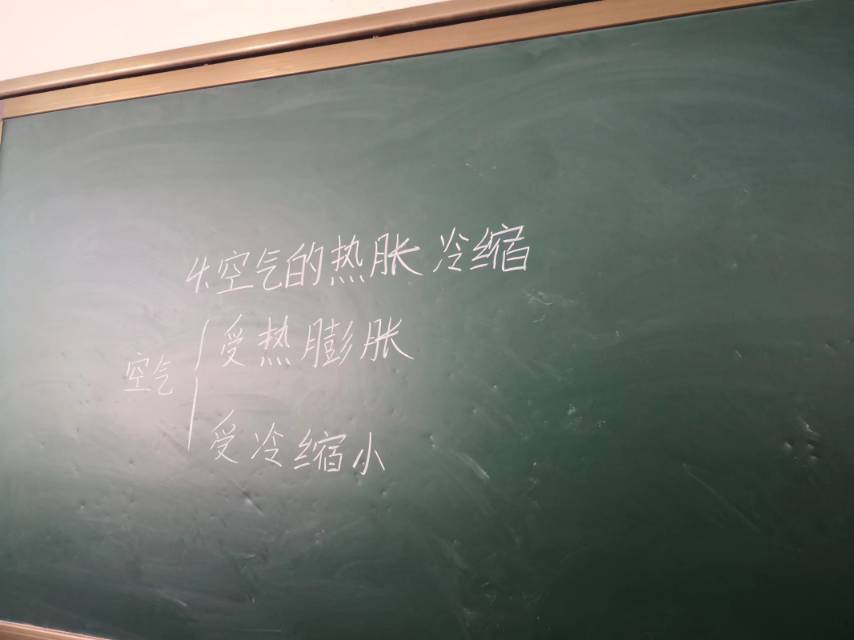 4.空气的热胀冷缩
空气
受热膨胀
受冷缩小